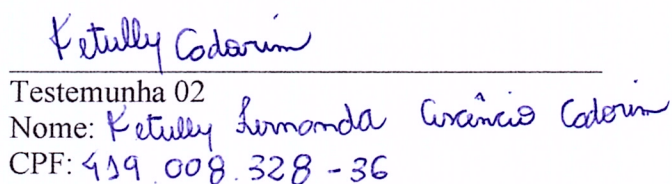 Ketully Cadorim
Testemunha 02
Nome: Ketully Fernanda Cirâncio Cadorim
CPF: 419.008.328-36